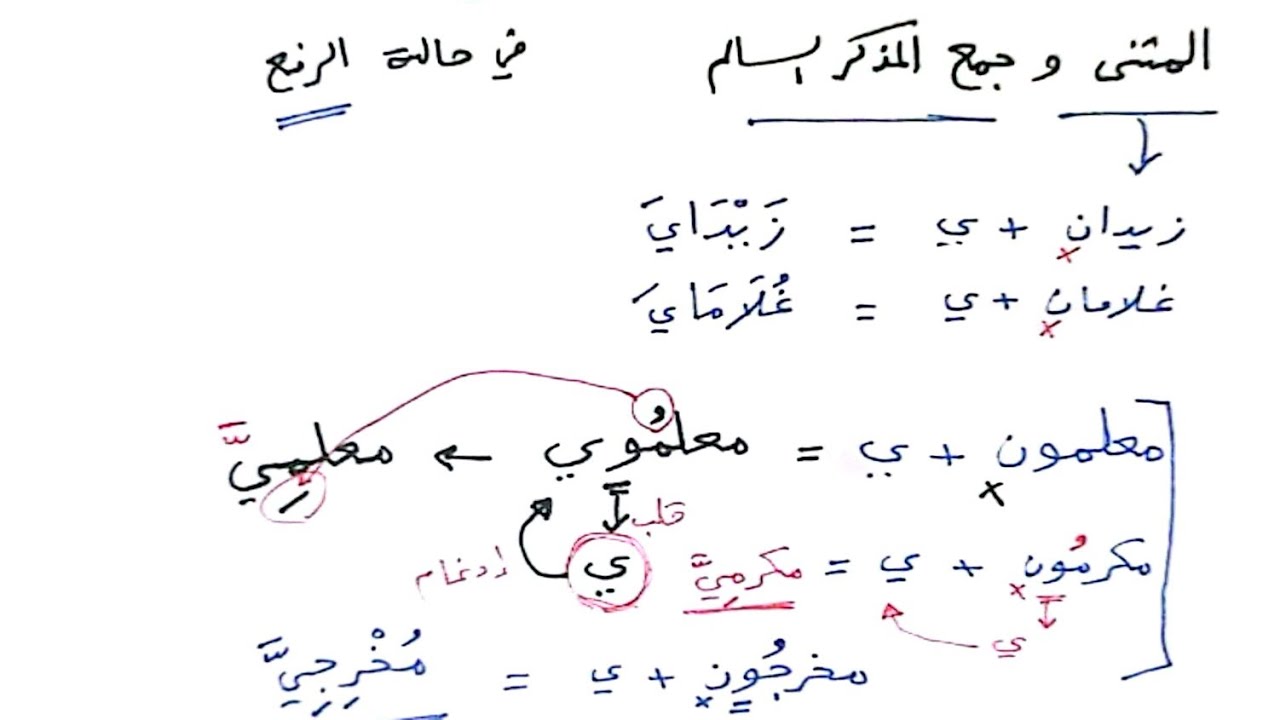 المثنى و جمع المذكر السالم في حالة الرفع
زيدان + ي = زَيْدَايَ
غلامان + ي = غُلَامَايَ
معلمون + ي = معلمُوي ← معلمِيَّ
قلب
ي
إدغام
مكرمُون + ي = مكرمِيَّ
ي
مخرجُون + ي = مُخْرِجِيَّ